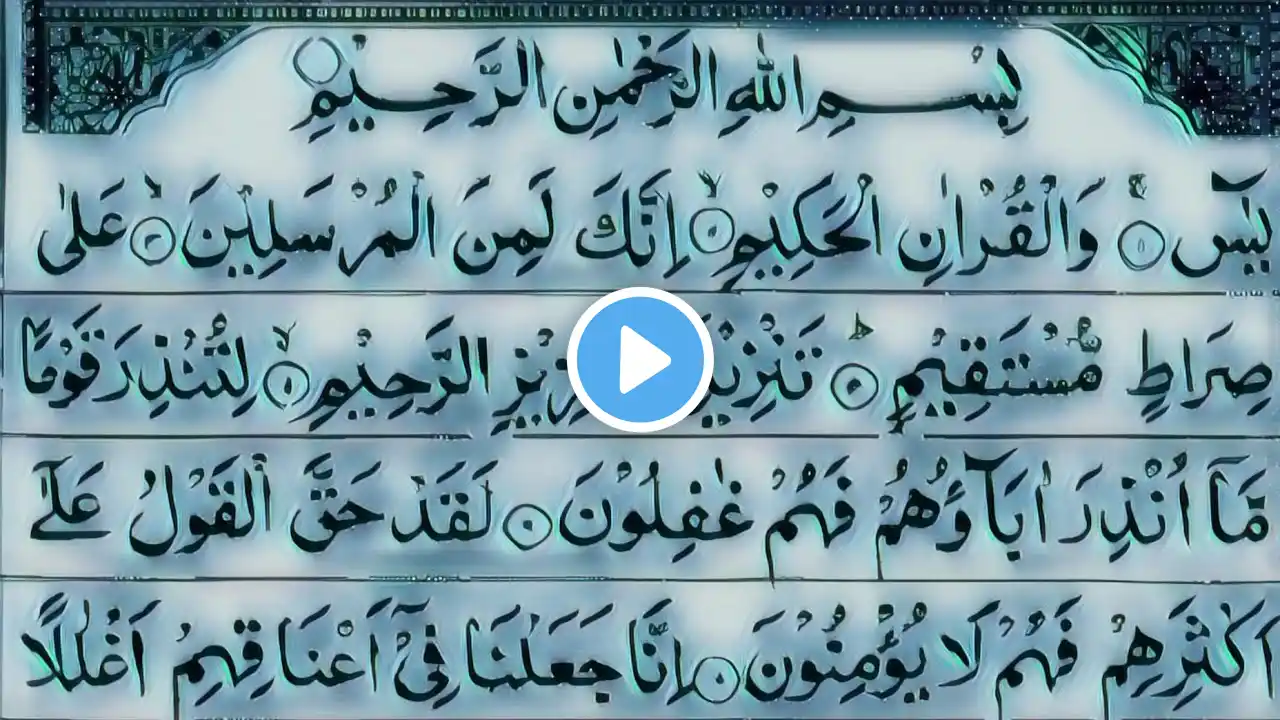 بِسْمِ اللهِ الرَّحْمٰنِ الرَّحِيْمِ
يٰسٓ ۝١ وَالْقُرْاٰنِ الْحَكِيْمِ اِنَّكَ لَمِنَ الْمُرْسَلِيْنَ عَلٰى
صِرَاطٍ مُّسْتَقِيْمٍ الرَّحِيْمِ لِتُنْذِرَ قَوْمًا
مَّآ اُنْذِرَ اٰبَآؤُهُمْ فَهُمْ غٰفِلُوْنَ لَقَدْ حَقَّ الْقَوْلُ عَلٰٓى
اَكْثَرِهِمْ فَهُمْ لَا يُؤْمِنُوْنَ اِنَّا جَعَلْنَا فِيْٓ اَعْنَاقِهِمْ اَغْلٰلًا